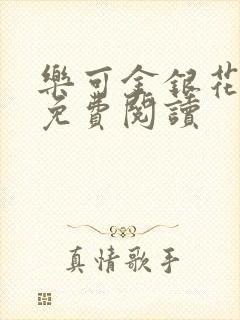 樂可金銀花
免費閱讀
真情歌手